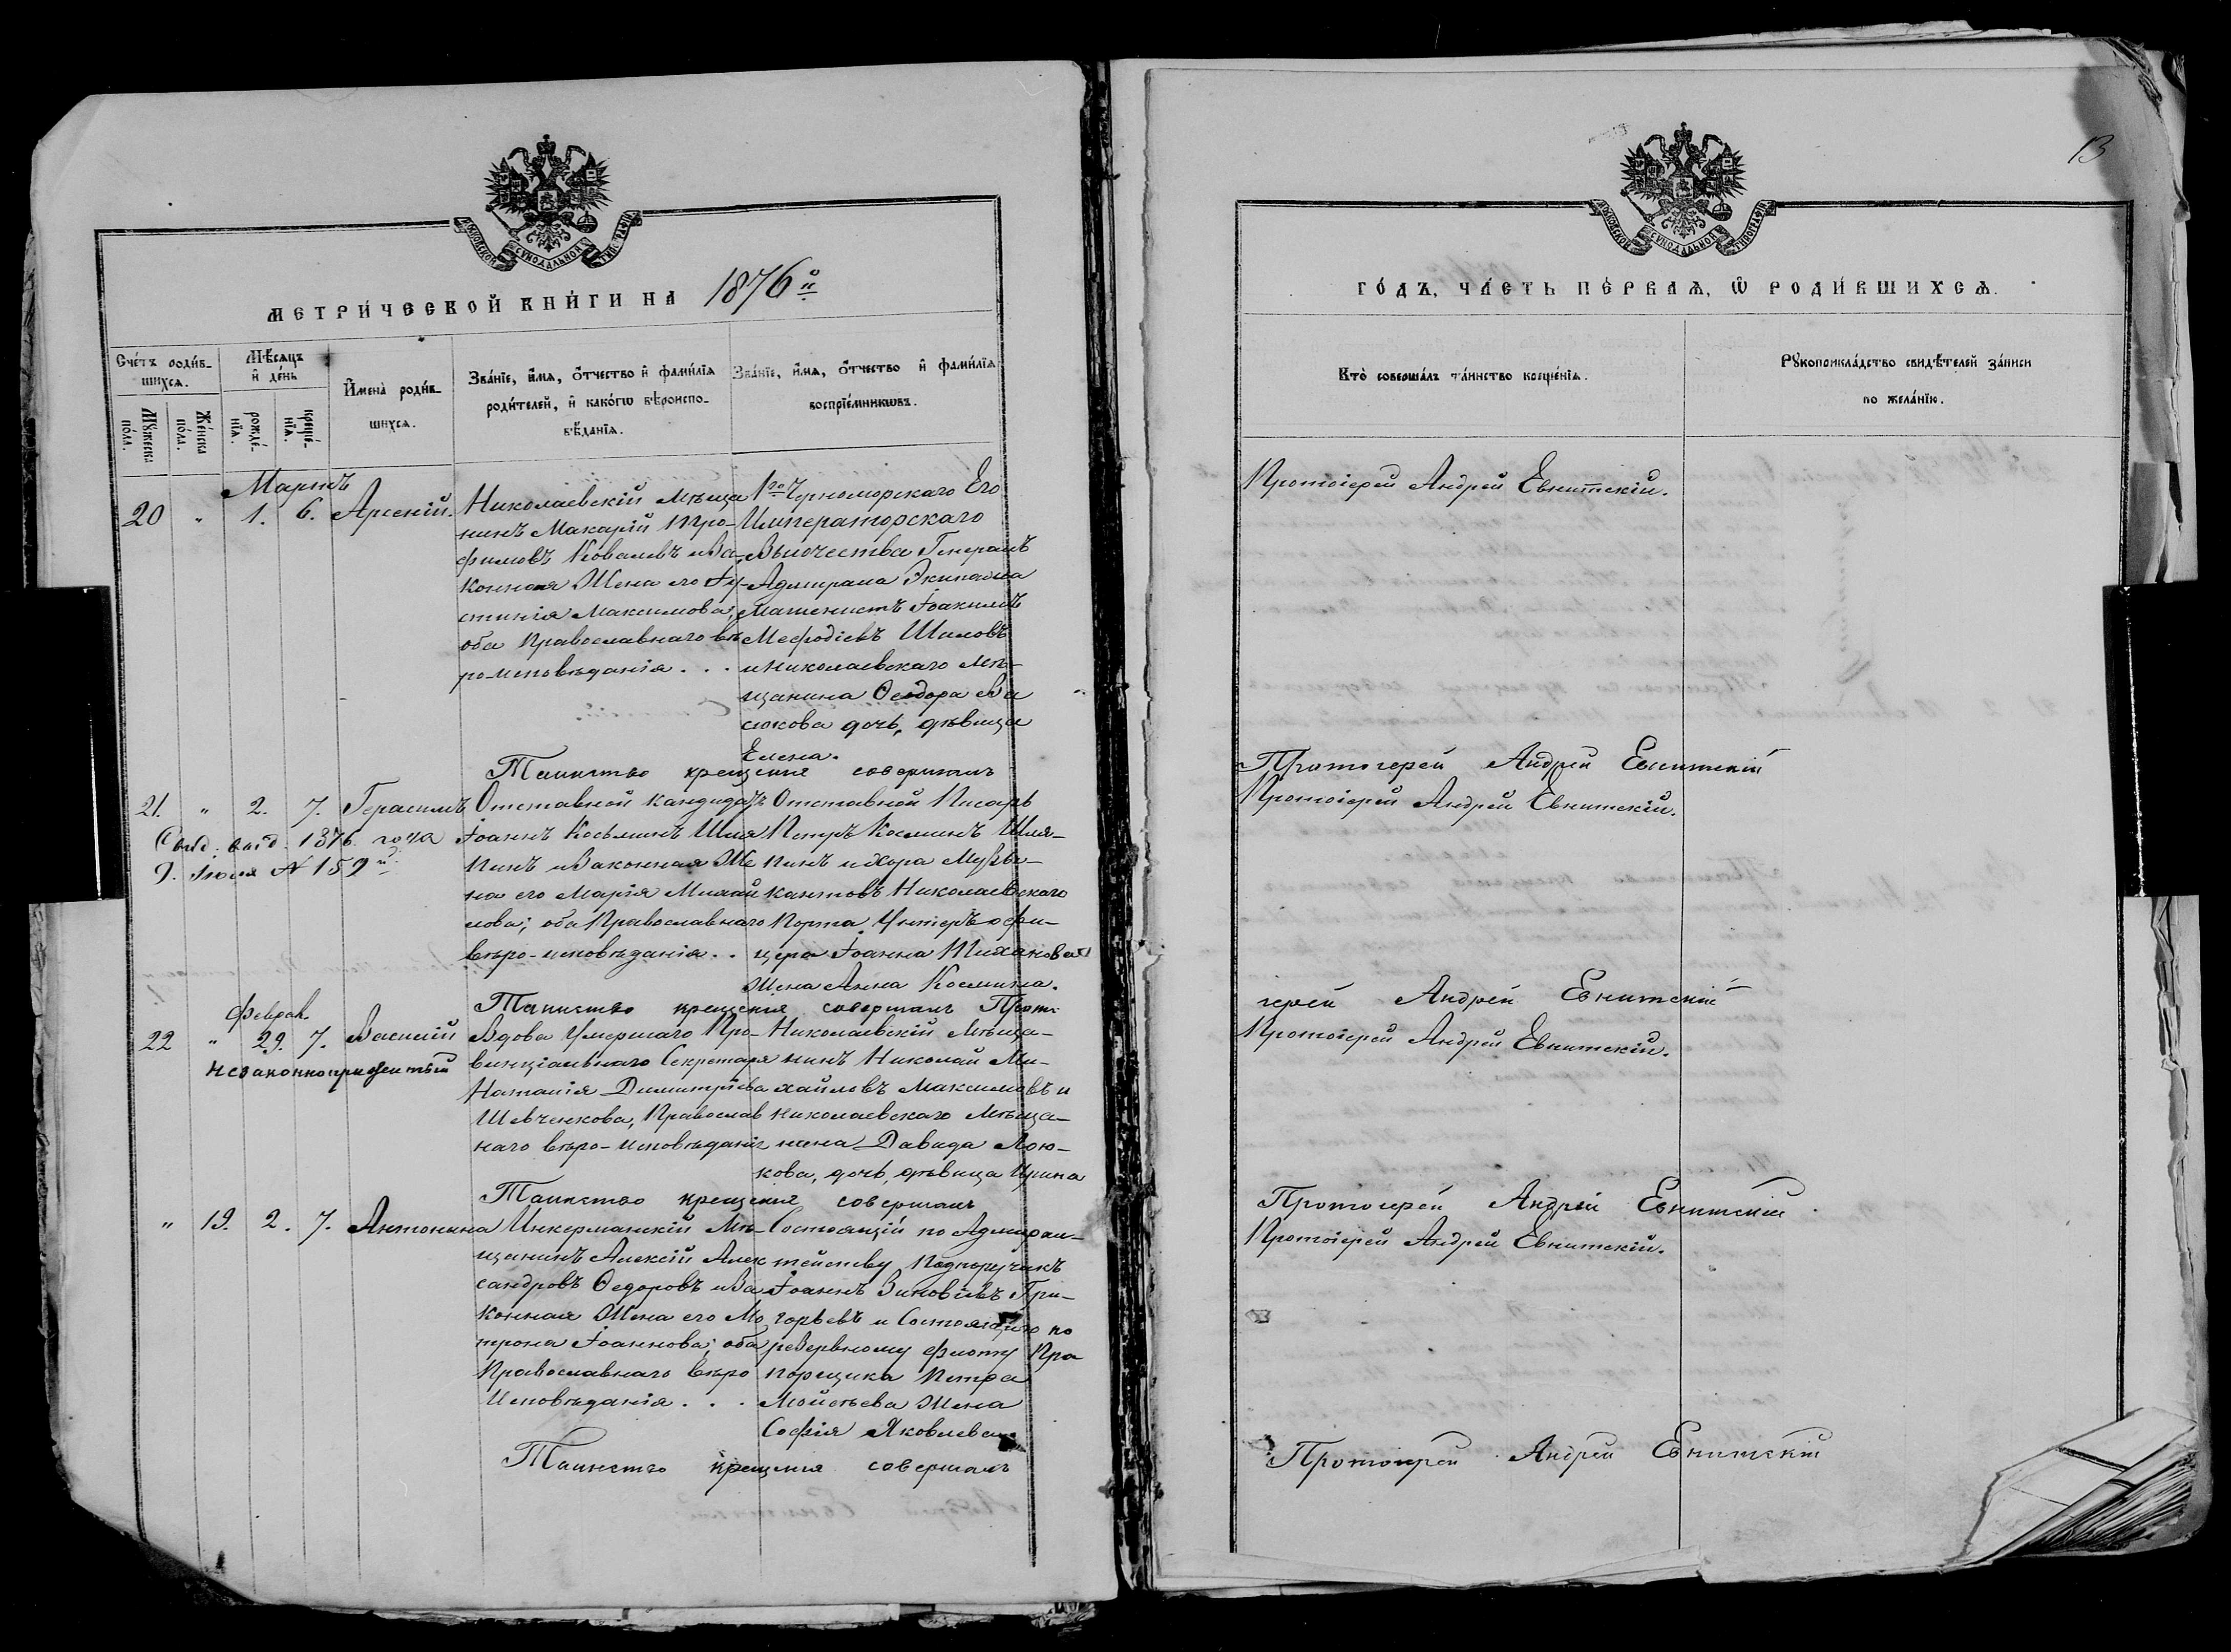 13
МОСКОВСКОЙ СѴНОДАЛЬНОЙ ТИПОГРАФІИ
МЕТРИ́ЧЕСКОЙ КНИ́ГИ НА 1876й
Сче́тъ роди́в-
шихсѧ.
Мꙋ́жеска
по́ла.
Же́нска
по́ла.
Мѣ́сѧцъ
и҆ де́нь
рожде́-
нїѧ.
креще́-
нїѧ.
И҆мена̀ роди́в-
шихсѧ.
Зва́нїе, и҆́мѧ, ѻ҆́тчество и҆ фами́лїѧ
роди́телей, и҆ како́гѡ вѣроиспо-
вѣ́данїѧ.
Зва́нїе, и҆́мѧ, ѻ҆́тчество и҆ фами́лїѧ
воспрїе́мникѡвъ.
Мартъ
20 " 1. 6. Арсеній.
Николаевскій Мѣща
нинъ Макарій Тро-
фимовъ Ковалевъ и За-
конная Жена его Іу-
стинія Максимова,
оба Православнаго вѣ
ро-исповѣданія . . .
1го Черноморскаго Его
Императорскаго
Высочества Генералъ
Адмирала Экипажа
Машенистъ Іоакимъ
Меѳодіевъ Шиловъ
и Николаевскаго Мѣ-
щанина Ѳеодора Ва
сюкова дочь, дѣвица
Елена.
Таинство крещения совершалъ
21. " 2. 7. Герасимъ
Свид. выд. 1876 года
9. Июля № 159й
Отставной Кандидатъ
Іоаннъ Косьминъ Шля
пинъ и Законная Же
на его Марія Михай
лова; оба Православнаго
вѣро-исповѣданія . .
Отставной Писарь
Петръ Косминъ Шля-
пинъ и Хора Музы-
кантовъ Николаевскаго
Порта Унтеръ-офи-
цера Іоанна Тиханова
Жена Анна Космина.
Таинство крещения совершалъ Прото
Феврал.
22 " 29. 7. Василій
Незаконнорожденный
Вдова Умершаго Про-
винціальнаго Секретаря
Наталія Димитріева
Шевченкова, Православ
наго вѣро-исповѣданія
Николаевскій Мѣща-
нинъ Николай Ми-
хайловъ Максимовъ и
Николаевскаго Мѣща-
нина Давида Лою-
кова, дочь, дѣвица Ирина
Таинство крещения совершалъ
" 19. 2. 7. Антонина
Инкерманскій Мѣ-
щанинъ Алексій Алек
сандровъ Ѳедоровъ и За
конная Жена его Ма
трона Іоаннова; оба
Православнаго вѣро
Исповѣданія . . .
Состоящій по Адмирал-
тейству Подпоручикъ
Іоаннъ Зиновіевъ Гри-
горьевъ и Состоящаго по
резервному флоту Пра
порщика Петра
Мойсѣева Жена
Софія Яковлева
Таинство крещения совершалъ
МОСКОВСКОЙ СѴНОДАЛЬНОЙ ТИПОГРАФІИ
ГО́ДЪ, ЧА́СТЬ ПЕ́РВАѦ, Ѽ РОДИ́ВШИХСѦ.
Кто̀ соверша́лъ та́инство креще́нїѧ.
Рꙋкоприкла́дство свидѣ́телей за́писи
по жела́нїю.
Протоіерей Андрей Евнитскій.
Протоиерей Андрей Евнитскій
Протоіерей Андрей Евнитскій.
иерей Андрей Евнитскій
Протоіерей Андрей Евнитскій.
Протоиерей Андрей Евнитскій
Протоіерей Андрей Евнитскій.
Протоиерей Андрей Евнитскій